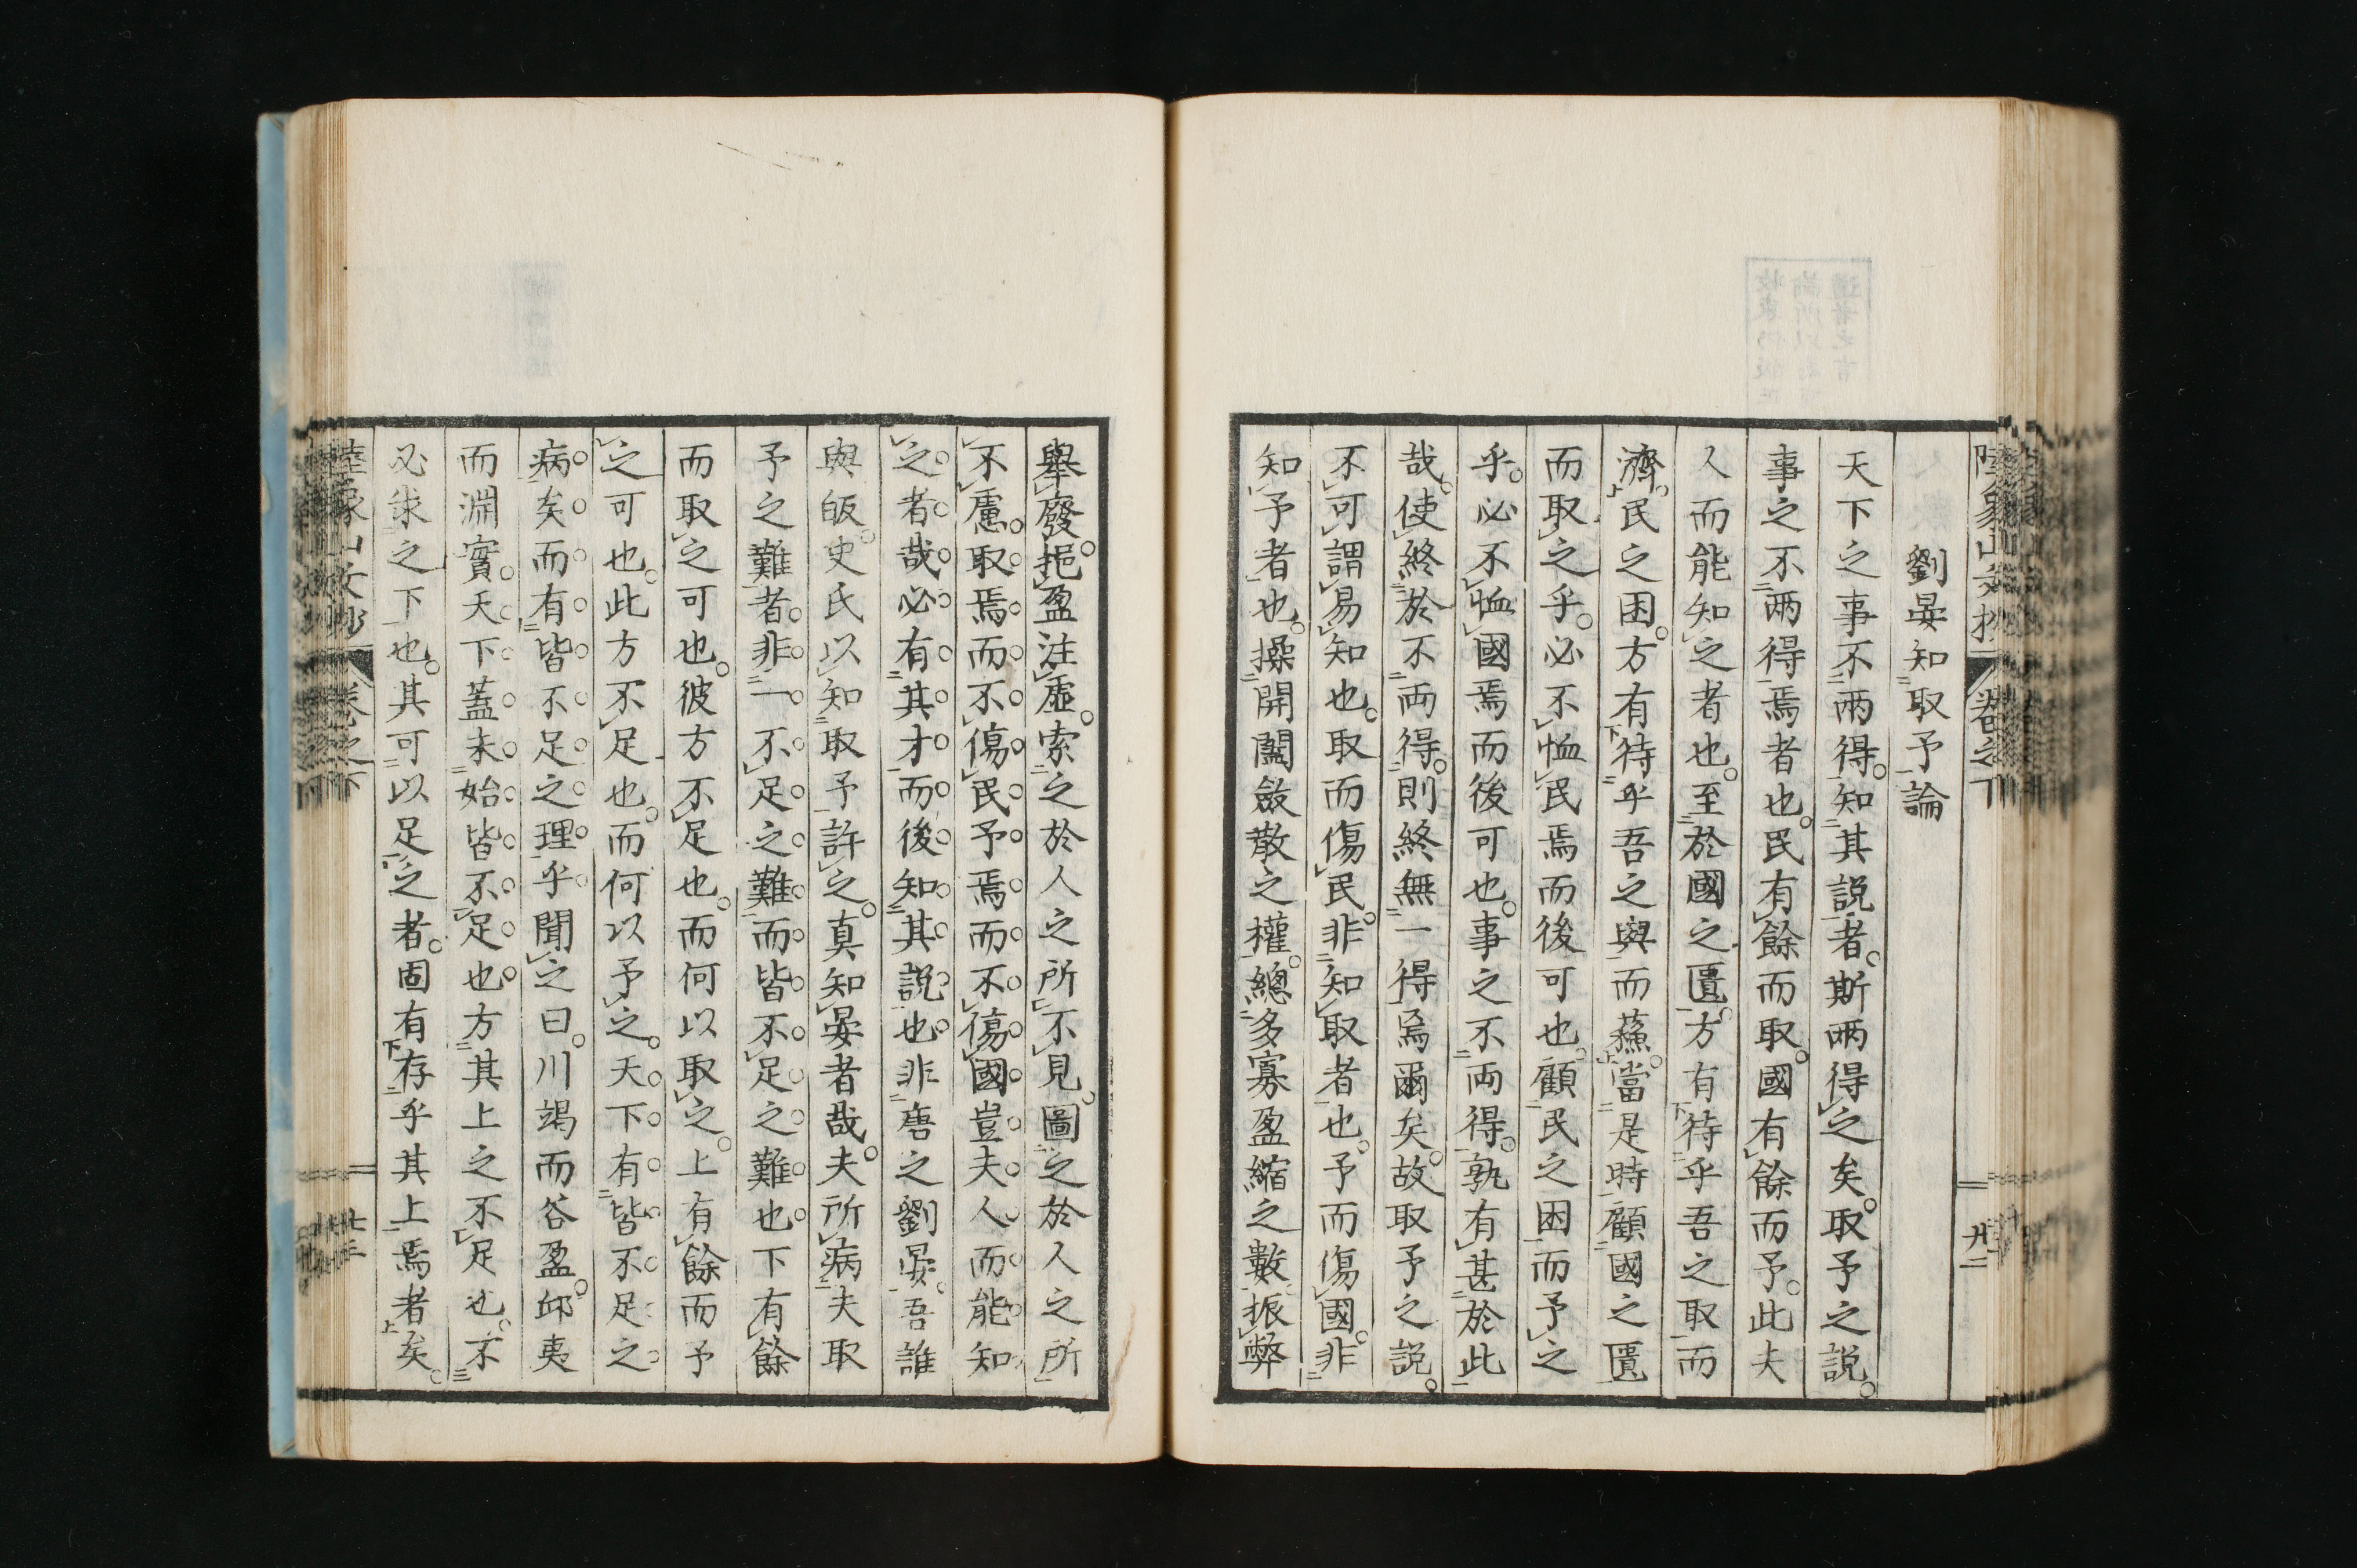 劉晏知取予論
天下之事不兩得。知其説者。斯兩得之矣。取予之説。
事之不兩得焉者也。民有餘而取。國有餘而予。此夫
人而能知之者也。至於國之匱。方有待乎吾之取而
濟。民之困。方有待乎吾之與而蘓。當是時顧國之匱
而取之乎。必不恤民焉而後可也。顧民之困而予之
乎。必不恤國焉而後可也。事之不兩得。孰有甚於此
哉。使終於不兩得。則終無一得焉爾矣。故取予之説。
不可謂易知也。取而傷民。非知取者也。予而傷國。非
知予者也。操開闔斂散之權。總多寡盈縮之數。振弊
舉廢。挹盈注虛。索之於人之所不見。圖之於人之所
不慮。取焉而不傷民。予焉而不傷國。豈夫人而能知
之者哉。必有其才而後知其説也。非唐之劉晏。吾誰
與皈。史氏以知取予許之。真知晏者哉。夫所病夫取
予之難者。非一不足之難。而皆不足之難也。下有餘
而取之可也。彼方不足也。而何以取之。上有餘而予
之可也。此方不足也。而何以予之。天下有皆不足之
病矣。而有皆不足之理乎。聞之曰。川竭而谷盈。邱夷
而淵實。天下蓋未始皆不足也。方其上之不足也。不
必求之下也。其可以足之者。固有存乎其上焉者矣。
陸象山文抄
卷之下
廿二
陸象山文抄
卷之下
廿三